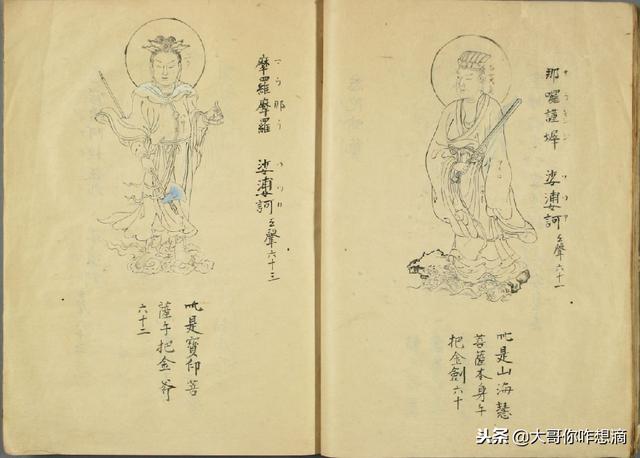 那囉謹墀 娑婆訶 上聲六十一
此是山海慧
菩薩本身手
把金劍六十
摩羅摩羅 娑婆訶 上聲六十三
此是寶印菩
薩手把金斧
六十二
头条 @大哥你咋想滴